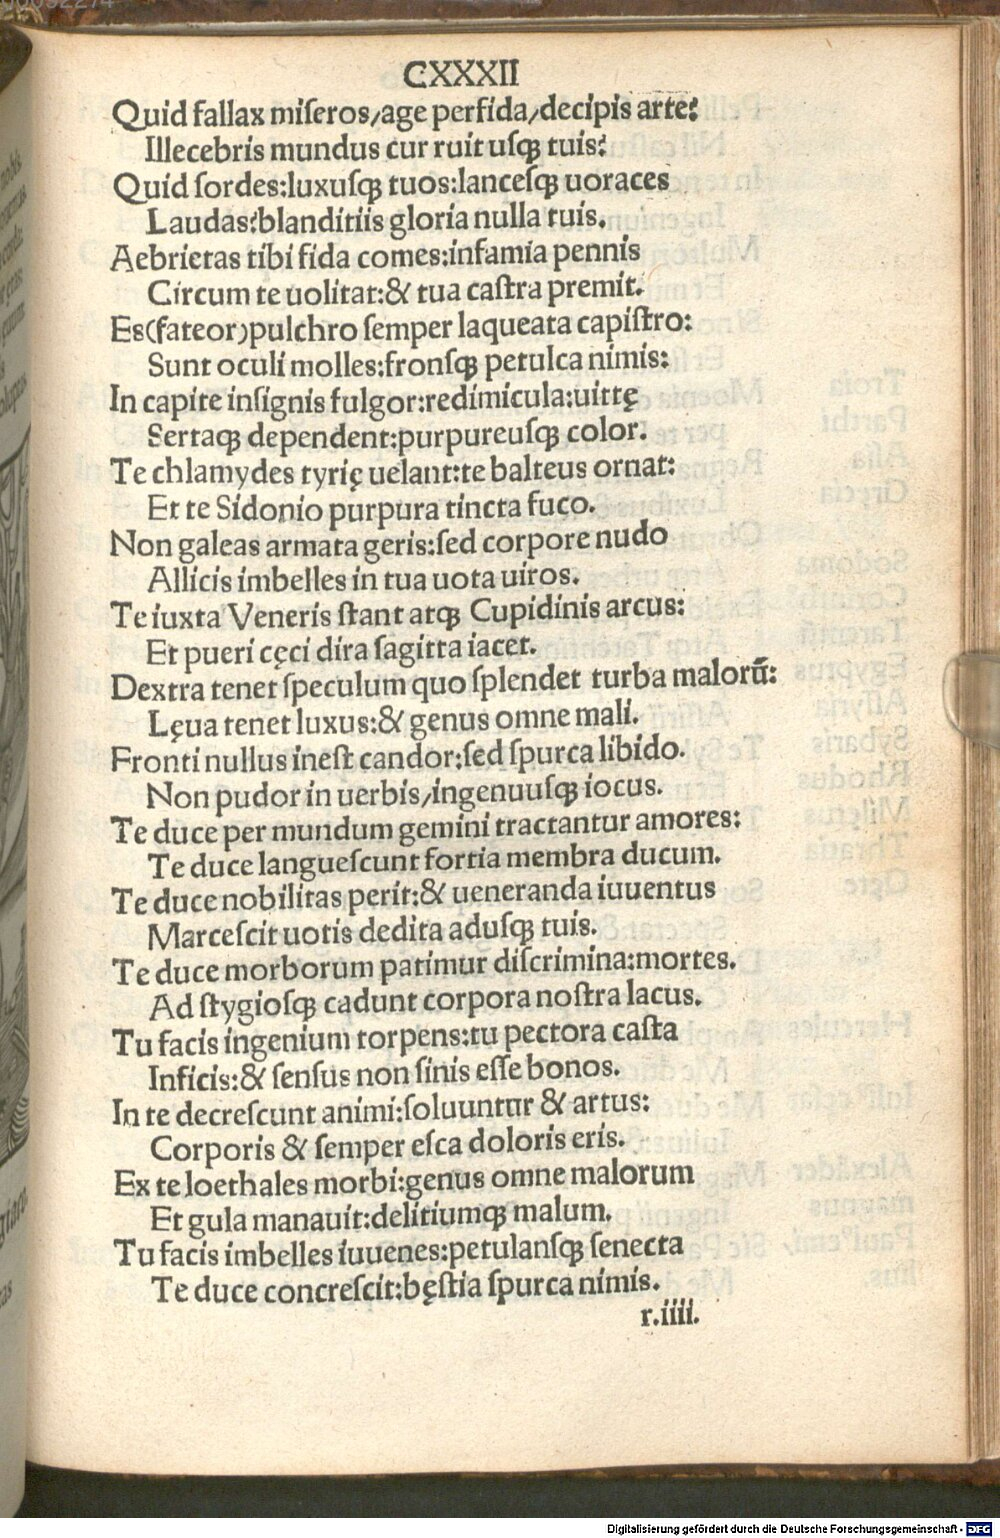 CXXXII
Quid fallax miſeros/age perfida/decipis arte?
Illecebris mundus cur ruit uſqꝫ tuis?
Quid ſordes:luxuſqꝫ tuos:lanceſqꝫ uoraces
Laudas?blanditiis gloria nulla tuis.
Aebrietas tibi fida comes:infamia pennis
Circum te uolitat:& tua caſtra premit.
Es(fateor)pulchro ſemper laqueata capiſtro:
Sunt oculi molles:fronſqꝫ petulca nimis:
In capite inſignis fulgor:redimicula:uittę
Sertaqꝫ dependent:purpureuſqꝫ color.
Te chlamydes tyrię uelant:te balteus ornat:
Et te Sidonio purpura tincta fuco.
Non galeas armata geris:ſed corpore nudo
Allicis imbelles in tua uota uiros.
Te iuxta Veneris ſtant atqꝫ Cupidinis arcus:
Et pueri cęci dira ſagitta iacet.
Dextra tenet ſpeculum quo ſplendet turba maloru̅:
Lęua tenet luxus:& genus omne mali.
Fronti nullus ineſt candor:ſed ſpurca libido.
Non pudor in uerbis/ingenuuſqꝫ iocus.
Te duce per mundum gemini tractantur amores:
Te duce langueſcunt fortia membra ducum.
Te duce nobilitas perit:& ueneranda iuuentus
Marceſcit uotis dedita aduſqꝫ tuis.
Te duce morborum patimur diſcrimina:mortes.
Ad ſtygioſqꝫ cadunt corpora noſtra lacus.
Tu facis ingenium torpens:tu pectora caſta
Inficis:& ſenſus non ſinis eſſe bonos.
In te decreſcunt animi:ſoluuntur & artus:
Corporis & ſemper eſca doloris eris.
Ex te loethales morbi:genus omne malorum
Et gula manauit:delitiumqꝫ malum.
Tu facis imbelles iuuenes:petulanſqꝫ ſenecta
Te duce concreſcit:bęſtia ſpurca nimis.
r.iiii.
Digitalisierung gefördert durch die Deutsche Forschungsgemeinschaft - DFG